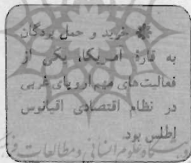 خرید و حمل بردگان
به قارهٔ آمریکا، یکی از
فعالیت‌های مهم اروپای غربی
در نظام اقتصادی اقیانوس
اطلس بود.
علوم انسانی و مطالعات